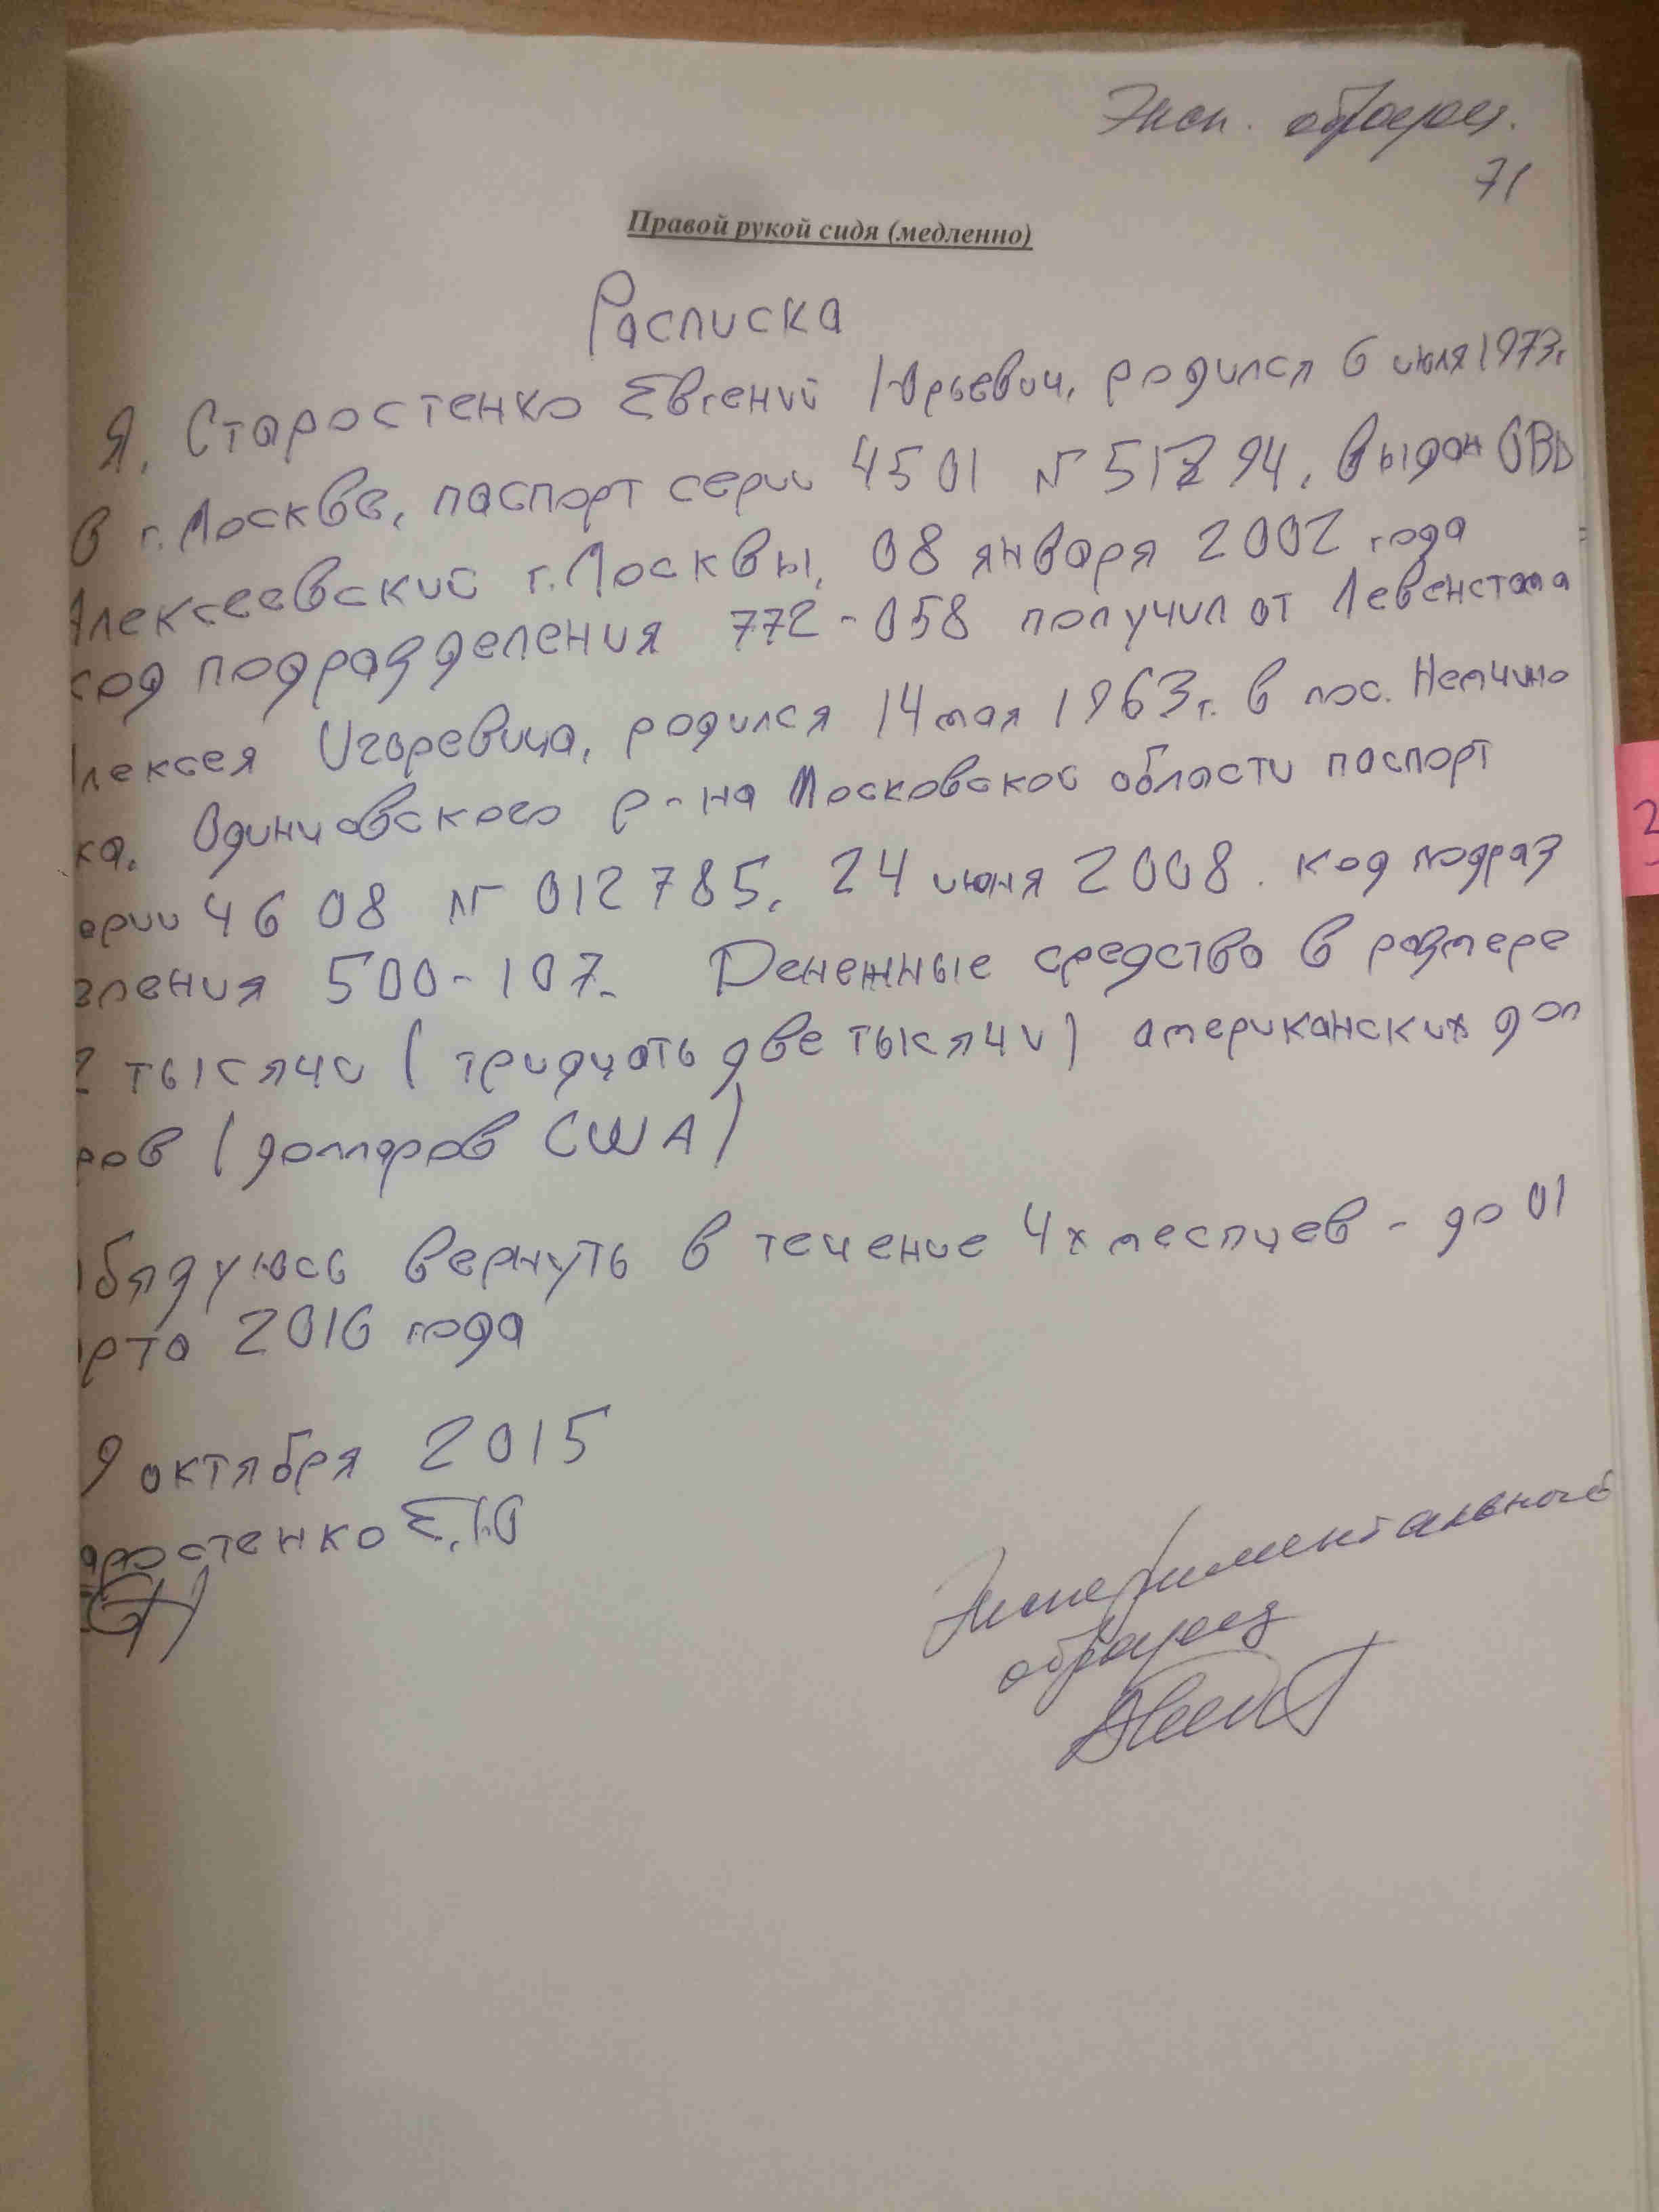 Эксп. образец.
71
Правой рукой сидя (медленно)
Расписка
Я, Старостенко Евгений Юрьевич, родился 6 июля 1973г.
в г. Москве, паспорт серии 4501 № 51 94, выдан ОВД
Алексеевский г. Москвы, 08 января 2002 года
код подразделения 772-058 получил от Левенстама
лексея Игоревича, родился 14 мая 1963г. в пос. Немчино
ка. Одинцовского р-на Московской области паспорт
ерии 46 08 № 012785, 24 июня 2008. код подраз
еления 500-107. Денежные средства в размере
2 тысячи (тридцать две тысячи) американских дол
ров (долларов США)
бязуюсь вернуть в течение 4х месяцев - до 01
рта 2016 года
9 октября 2015
аростенко Е.Ю
Экспериментальный
образец